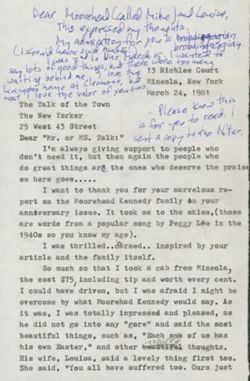 Dear Moorehead (called Mike) and Louise,
This expressed my thoughts.
My admiration for you is
I was in the church. I wanted to
say lots of good things, but there were too many
waiting behind me. I love the
home at Clermont, but
most I love the valor of you two
Please know this
is for you to read. I
sent a copy to the
13 Richlee Court
Mineola, New York
March 24, 1981
The Talk of the Town
The New Yorker
25 West 43 Street
Dear "Mr. or MS. Talk:"
I'm always giving support to people who
don't need it, but then again the people who
do great things are the ones who deserve the praise
so here goes.....
I want to thank you for your marvelous re-
port on the Moorehead Kennedy family in your
anniversary issue. It took me to the skies,(those
are words from a popular song by Peggy Lee in the
1940s so you know my age).
I was thrilled..armed.. inspired by your
article and the family itself.
So much so that I took a cab from Mineola,
the cost $75 including tip and worth every cent.
I could have driven, but I was afraid I might be
overcome by what Moorehead Kennedy would say. As
it was, I was totally impressed and pleased, as
he did not go into any "gore" and said the most
beautiful things, such as, "Each one of us has
his own Easter," and other beautiful thoughts.
His wife, Louisa, said a lovely thing first too.
She said, "You all have suffered too. Ours just